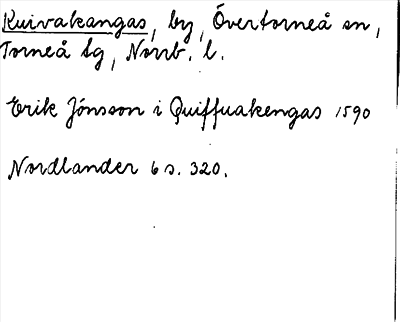 Kuivakangas, by, Övertorneå sn,
Torneå tg, Norrb. l.
Erik Jónsson i Quiffuakengas 1590
Nordlander 6 s. 320.